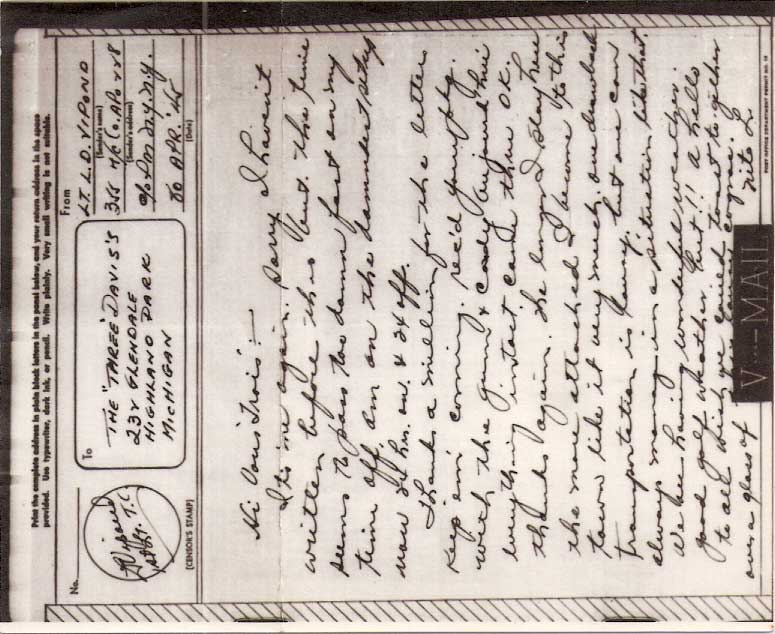 Print the complete address in plain block letters in the panel below, and your return address in the space
provided. Use typewriter, dark ink, or pencil. Write plainly. Very small writing is not suitable.
No.
(CENSOR'S STAMP)
To
THE "THREE" DAVIS'S
GLENDALE
HIGHLAND PARK
MICHIGAN
From
LT. L. D. VIPOND
(Sender's name)
355 H/C Co. APO
(Sender's address)
c/o Pm N.Y. N.Y.
APR. '45
(Date)
Hi Davis' Trois':—
It's me again. Sorry I haven't
written before this but the time
seems to pass too damn fast on my
time off. Am on the hammer
now 24 hrs. on & 24 off.
Thanks a million for the letters
keep em' coming. rec'd your pkg.
with the gum & candy
everything in it came thru OK.
thanks again. The longer I stay here
the more attached I become to this
town like it very much, one drawback
transportation is lousy. but one can
always manage in a situation like that.
We're having wonderful weather.
good golf weather But!! a hello
to all wish we could toast together
over a glass of cognac.
L
V···—MAIL
POST OFFICE DEPARTMENT PERMIT NO.